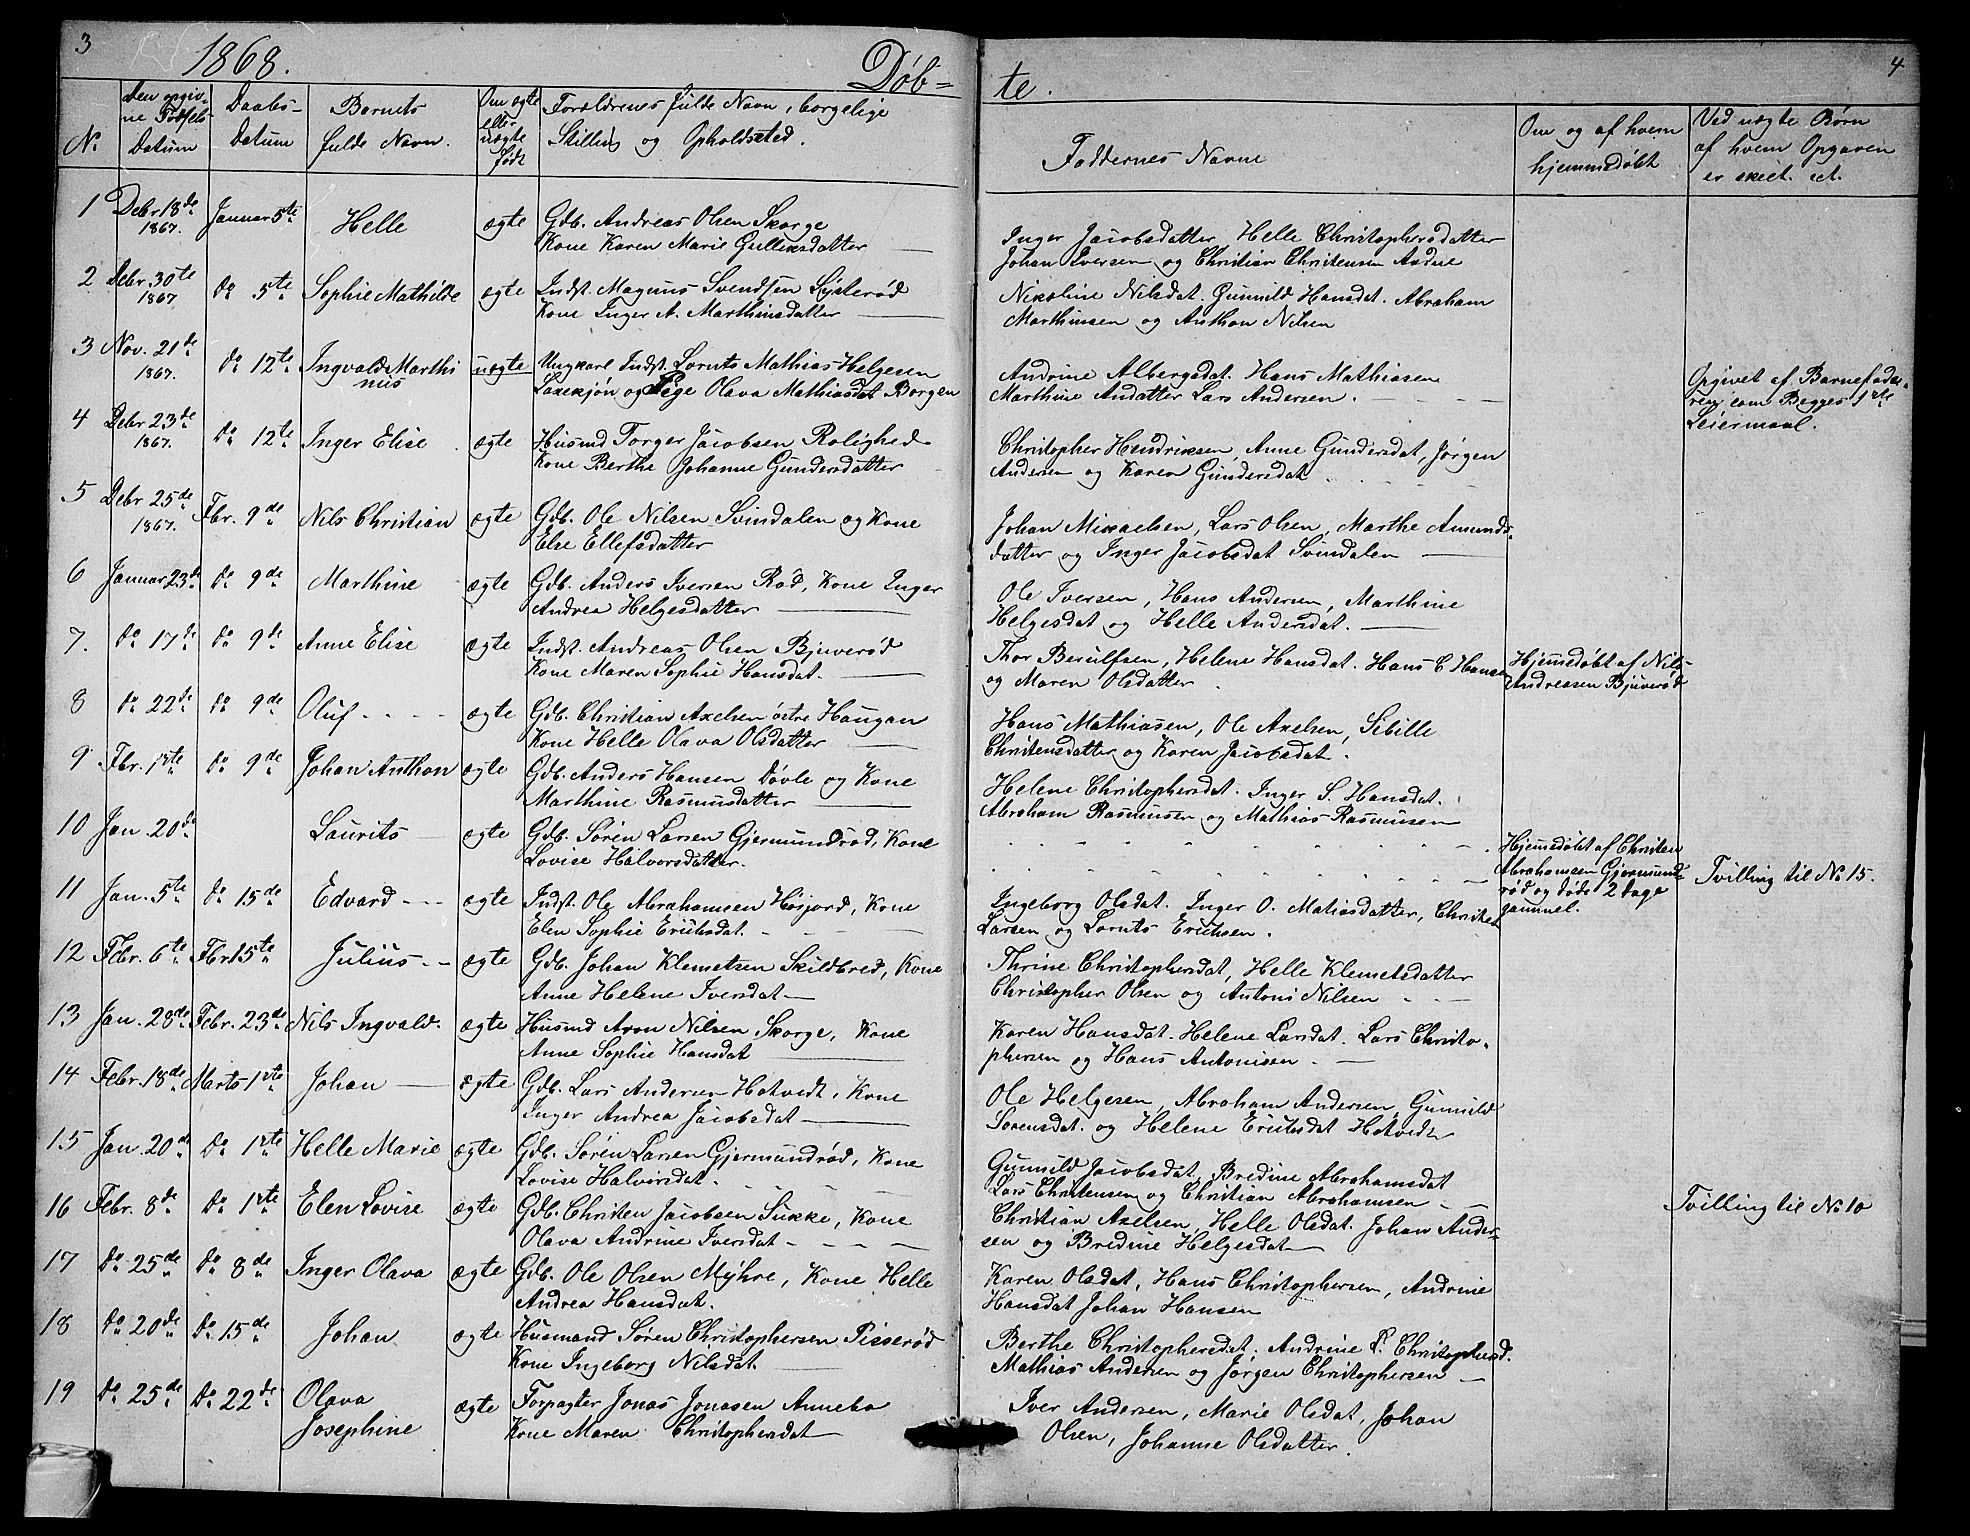 3
1868.
Døb-
te.
4
No
Den opgiv-
ne Fødsels-
Datum
Daabs-
Datum
Barnets
fulde Navn.
Om ægte
eller
uægte
født
Forældrenes fulde Navn, borgelige
Stilling og Opholdssted.
Faddernes Navne
Om og af hvem
hjemmedøbt
Ved uægte Børn
af hvem Opgaven
er skeet. ect.
1 Debr 18de Januar 5te Helle ægte Gdb. Andreas Olsen Skorge
1867. Kone Karen Marie Gulliksdatter
Inger Jacobsdatter, Helle Christophersdatter
Johan Iversen og Christian Christensen
2 Debr 30te Do 5te Sophie Mathilde ægte Indst. Magnus Svendsen
1867 Kone Inger A. Marthinsdatter
Nicoline Nilsdat. Gunnild Hansdat. Abraham
Marthinsen og Anthon Nilsen
3 Nov. 21de Do 12te Ingvald Marthi uægte Ungkarl Indst. Lornts Mathias Helgesen
1867. nus og Pige Olava Mathiasdat Borgen
Andrine Albergsdat. Hans Mathiasen
Marthine Andatter Lars Andersen.
Opgivet af Barnefade-
ren som Begges 1ste
Leiermaal.
4 Debr 23de Do 12te Inger Elise ægte Husmd Torger Jacobsen Rolighed
1867. Kone Berthe Johanne Gundersdatter
Christopher Hendriksen, Anne Gundersdat, Jørgen
Andersen og Karen Gundersdat
5 Debr 25de Fbr. 9de Nils Christian ægte Gdb. Ole Nilsen Svindalen og Kone
1867. Else Ellefsdatter
Johan Mikaelsen, Lars Olsen, Marthe Amunds-
datter og Inger Jacobsdat Svindalen
6 Januar 23de Do 9de Marthine ægte Gdb. Anders Iversen Rød, Kone Inger
Andrea Helgesdatter
Ole Iversen, Hans Andersen, Marthine
Helgesdat og Helle Andersdat.
7. Do 17de Do 9de Anne Elise ægte Indst. Andreas Olsen Bjuverød
Kone Maren Sophie Hansdat.
Thor Berulfsen, Helene Hansdat. Hans C Hansen
og Maren Olsdatter.
Hjemedøbt af Nils
Andreasen Bjuverød
8 Do 22de Do 9de Oluf ægte Gdb. Christian Axelsen østre Haugan
Kone Helle Olava Olsdatter
Hans Mathiasen, Ole Axelsen, Sibille
Christensdatter og Karen Jacobsdat.
9 Fbr. 1ste Do 9de Johan Anthon ægte Gdb. Anders Hansen Døvle og Kone
Marthine Rasmusdatter
Helene Christophersdat. Inger S. Hansdat.
Abraham Rasmussen og Mathias Rasmussen
10 Jan. 20de Laurits ægte Gdb. Søren Larsen Gjermundrød, Kone
Lovise Halvorsdatter.
Hjemedøbt af Christen
Abrahamsen Gjermund-
rød og døde 2 Dage
gammel.
Tvilling til No 15.
11 Jan. 5te Do 15de Edvard ægte Indst. Ole Abrahamsen Høijord, Kone
Elen Sophie Eriksdat.
Ingeborg Olsdat. Inger O. Matiasdatter, Christen
Larsen og Lornts Eriksen.
12 Febr. 6te Fbr 15te Julius ægte Gdb. Johan Klemetsen Skildbred, Kone
Anne Helene Iversdat
Thrine Christophersdat, Helle Klemetsdatter
Christopher Olsen og Antoni Nilsen
13 Jan. 28de Febr. 23de Nils Ingvald. ægte Husmd Aron Nilsen Skorge, Kone
Anne Sophie Hansdat
Karen Hansdat. Helene Larsdat. Lars Christo-
phersen og Hans Antonisen.
14 Febr. 18de Marts 1ste Johan ægte Gdb. Lars Andersen Hotvedt, Kone
Inger Andrea Jacobsdat
Ole Helgesen, Abraham Andersen, Gunnild
Sørensdat. og Helene Eriksdat Hotvedt
15 Jan. 20de Do 1ste Helle Marie ægte Gdb. Søren Larsen Gjermundrød, Kone
Lovise Halvorsdat.
Gunnild Jacobsdat, Bredine Abrahamsdat
Lars Christensen og Christian Abrahamsen
Tvilling til No 10
16 Febr. 8de Do 1ste Elen Lovise ægte Gdb. Christen Jacobsen Sukke, Kone
Olava Andrine Iversdat
Christian Axelsen, Helle Olsdat. Johan Ander-
sen og Bredine Helgesdat
17 Do 25de Do 8de Inger Olava ægte Gdb. Ole Olsen Myhre, Kone Helle
Andrea Hansdat.
Karen Olsdat, Hans Christophersen, Andrine
Hansdat Johan Hansen
18 Do 20de Do 15de Johan ægte Husmand Søren Christophersen Pisserød
Kone Ingeborg Nilsdat.
Berthe Christophersdat. Andrine L. Christophersd.
Mathias Andersen og Jørgen Christophersen
19 Do 25de Do 22de Olava ægte Forpagter Jonas Jonasen Annebo
Josephine Kone Maren Christophersdat
Iver Andersen, Marie Olsdat, Johan
Olsen, Johanne Olsdatter.